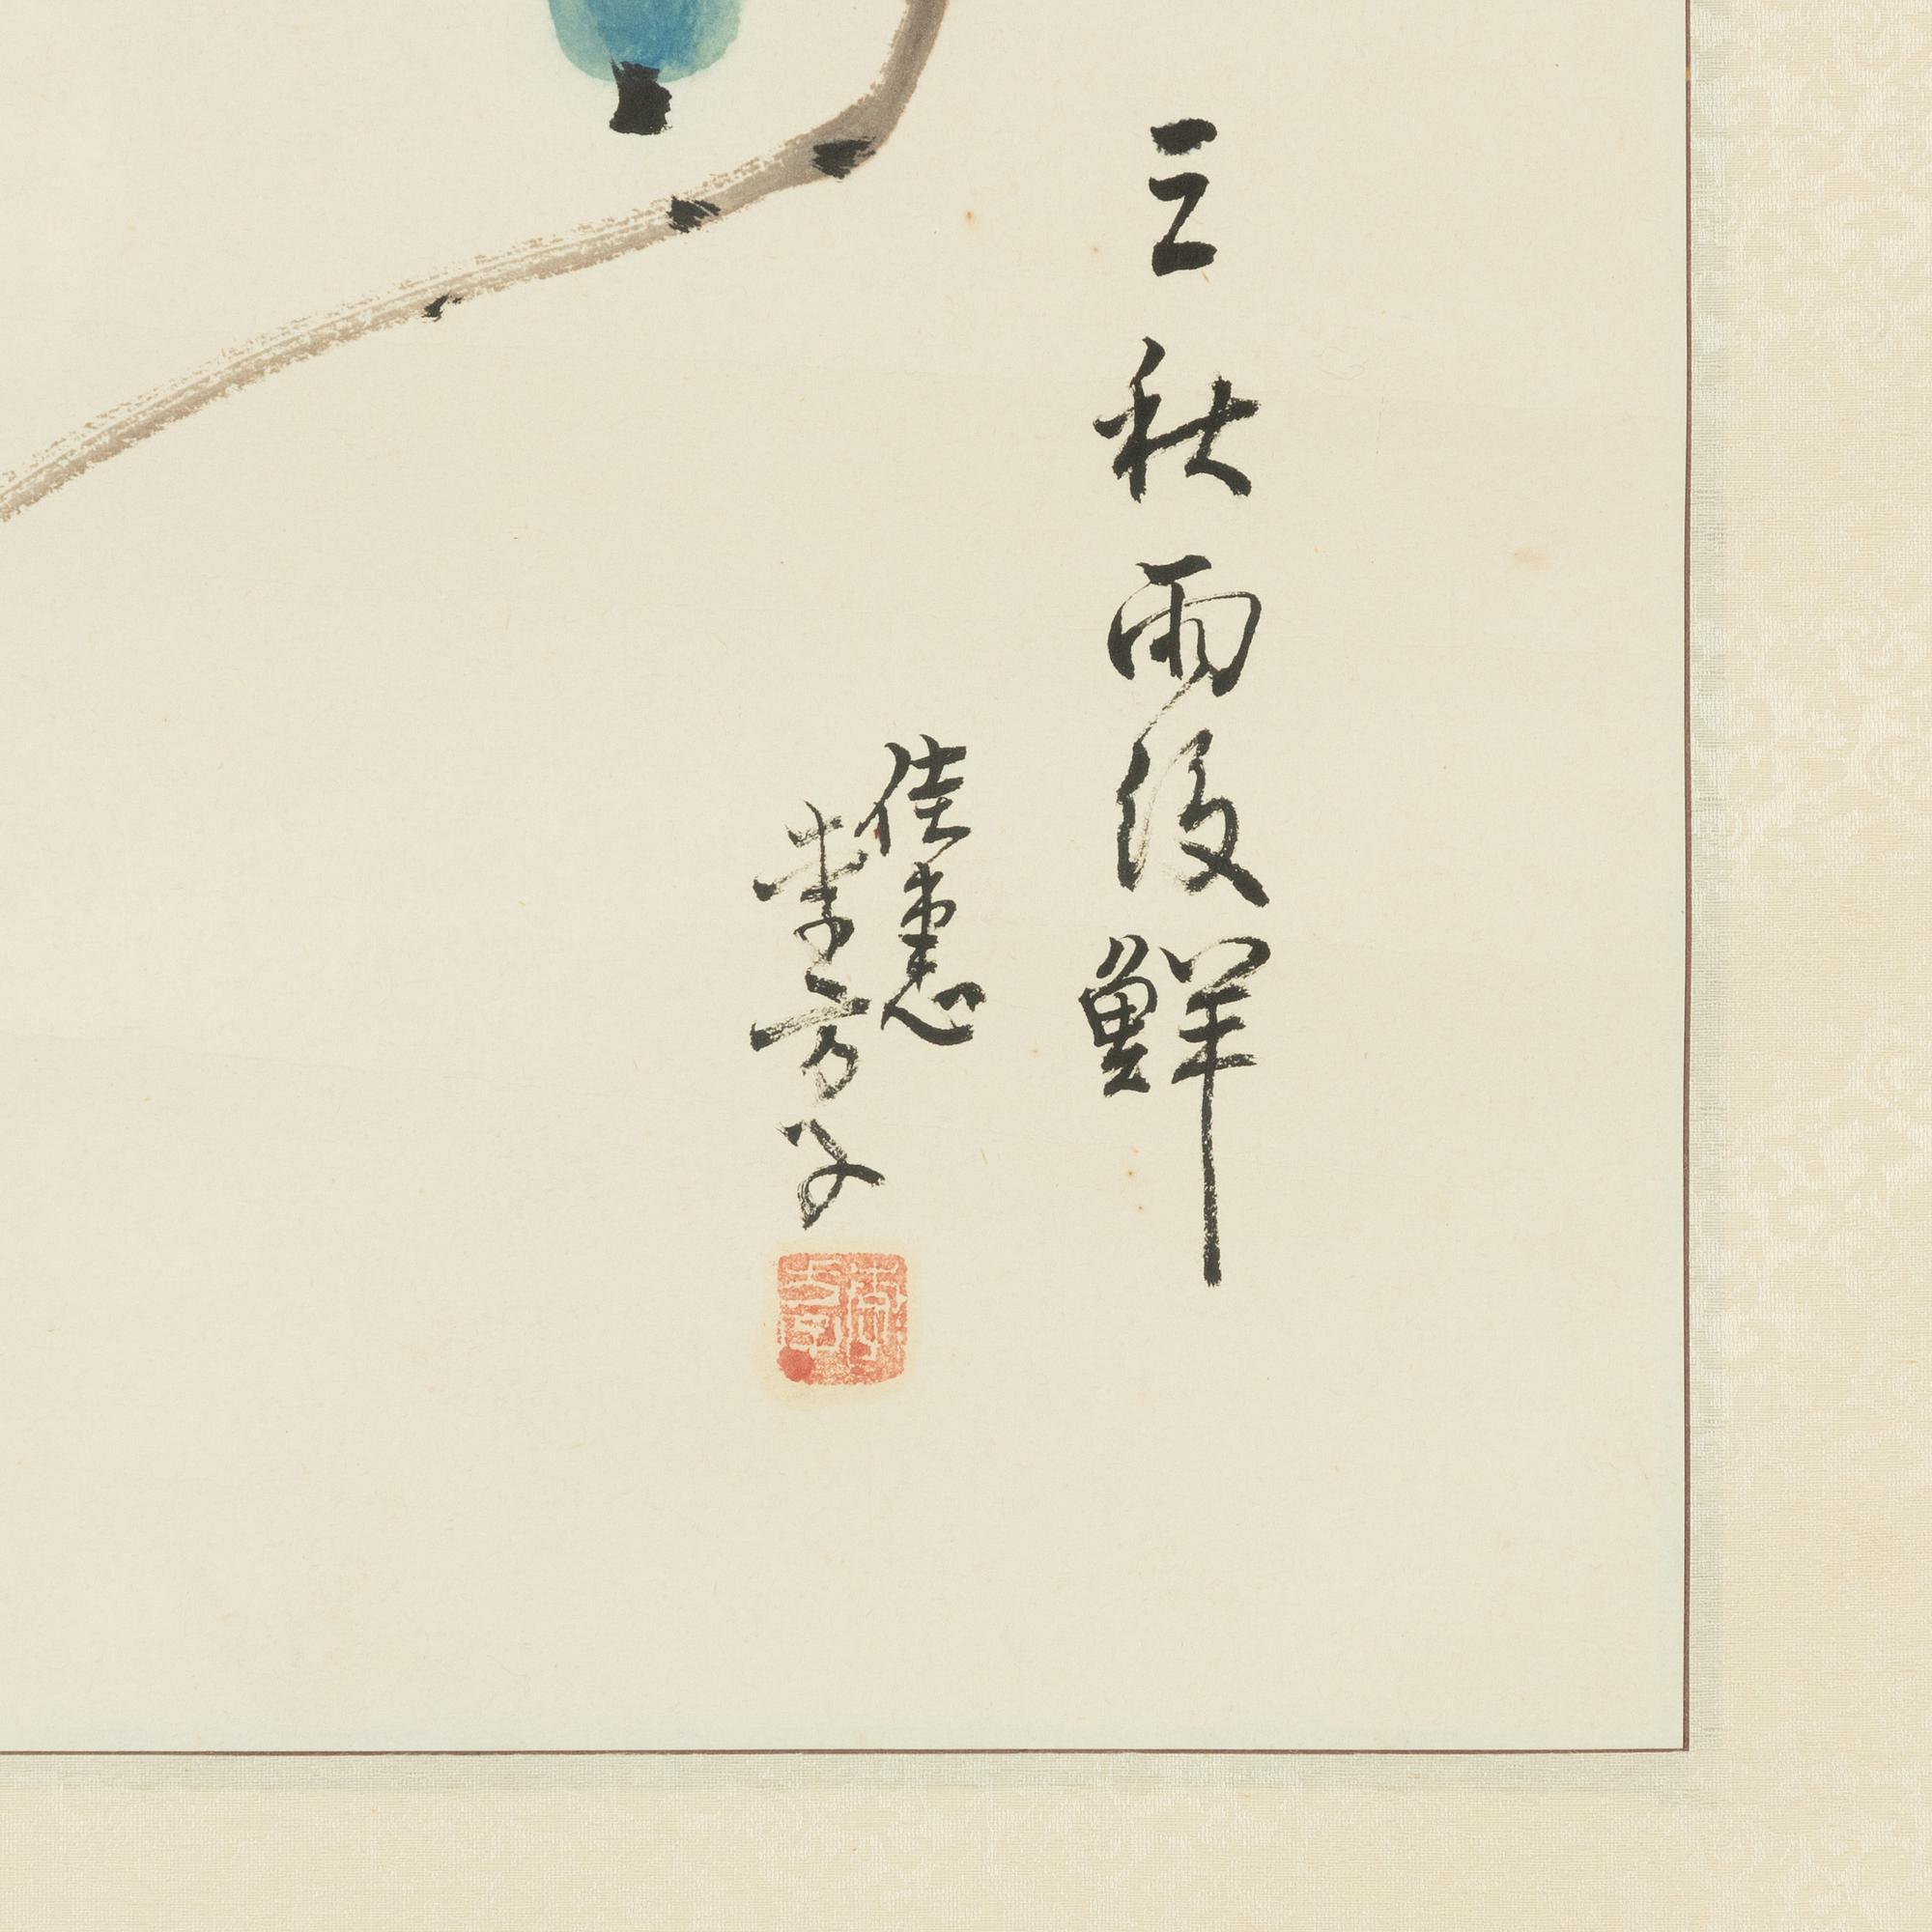 三秋雨後鮮
佳惠
堂方子